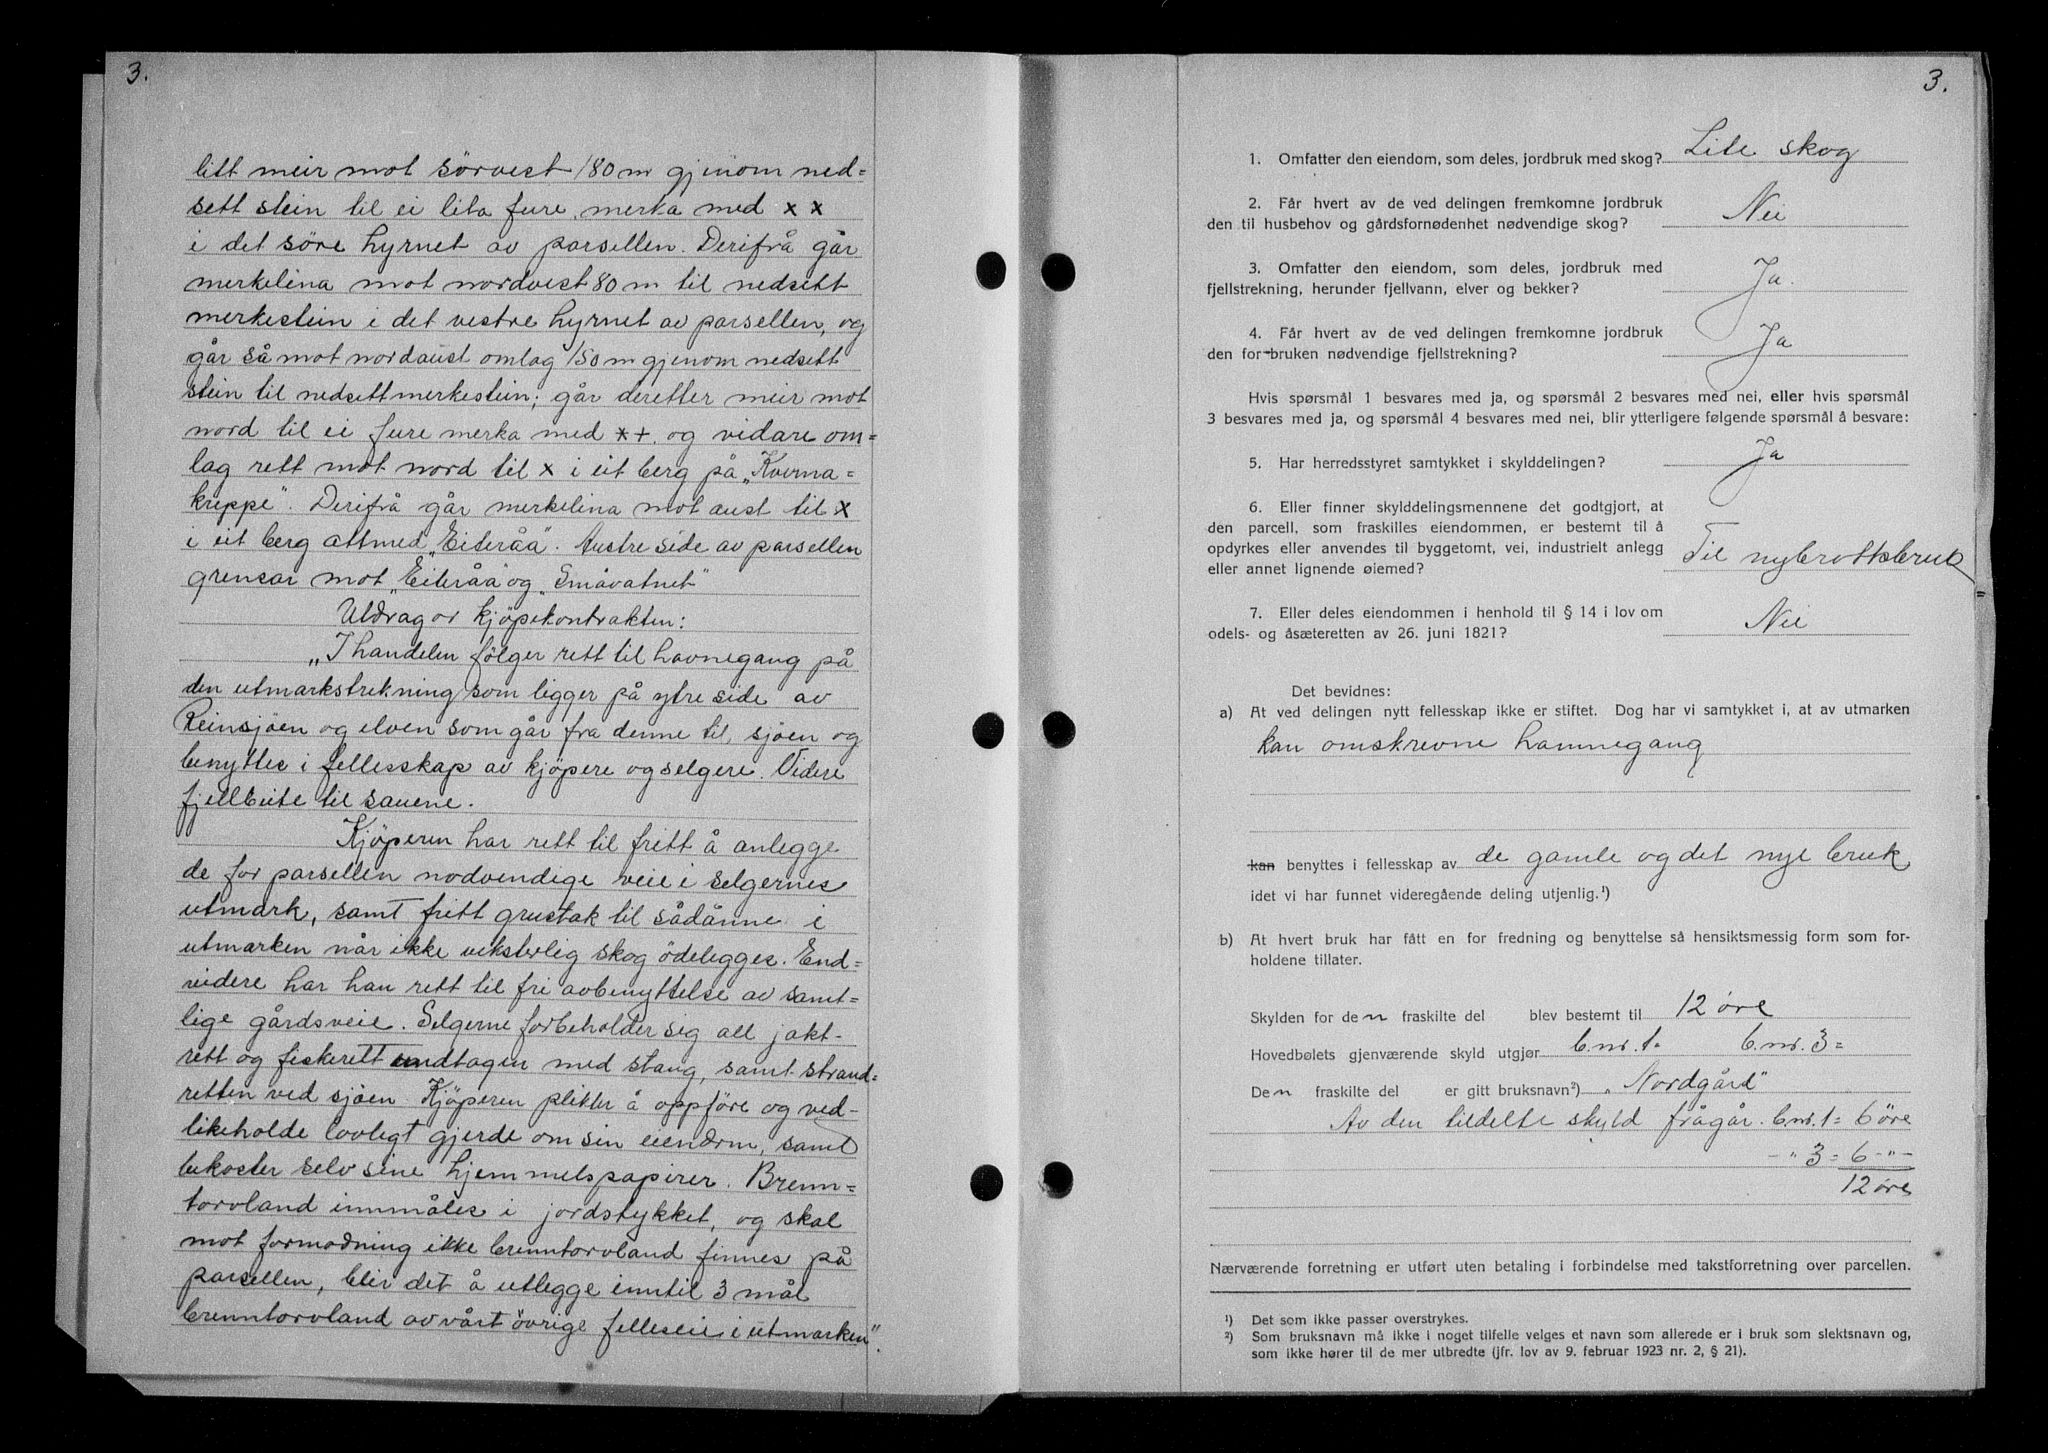 3.
litt meir mot sørvest 180 m gjenom ned=
sett stein til ei lita fure, merka med x x
i det søre hyrnet av parsellen. Derifrå går
merkelina mot nordvest 80 m til nedsett
merkestein i det vestre hyrnet av parsellen, og
går så mot nordaust omlag 150 m gjenom nedsett
stein til nedsett merkestein; går deretter meir mot
nord til ei fure merka med x+, og vidare om=
lag rett mot nord til x i eit berg på „Kverna=
kreppe". Derifrå går merkelina mot aust til x
i eit berg attmed „Eiteråa". Austre side av parsellen
grensar mot „Eiteråa" og „Småvatnet"
Utdrag or kjøpekontrakten:
„I handelen følger rett til havnegang på
den utmarkstrekning som ligger på ytre side av
Reinsjøen og elven som går fra denne til sjøen og
benyttes i fellesskap av kjøpere og selgere. Videre
fjellbeite til sauene.
Kjøperen har rett til fritt å anlegge
de for parsellen nødvendige veie i selgernes
utmark, samt fritt grustak til sådanne i
utmarken når ikke veksterlig skog ødelegges. End=
videre har han rett til fri avbenyttelse av samt=
lige gårdsveie. Selgerne forbeholder sig all jakt-
rett og fiskerett undtagen med stang, samt strand=
retten ved sjøen. Kjøperen plikter å oppføre og ved-
likeholde lovligt gjerde om sin eiendom, samt
bekoster selv sine hjemmelspapirer. Brenn=
torvland innmåles i jordstykket, og skal
mot formodning ikke brenntorvland finnes på
parsellen, blir det å utlegge inntil 3 mål
brenntorvland av vårt øvrige felleseie i utmarken".
3.
1. Omfatter den eiendom, som deles, jordbruk med skog? Lite skog
2. Får hvert av de ved delingen fremkomne jordbruk
den til husbehov og gårdsfornødenhet nødvendige skog? Nei
3. Omfatter den eiendom, som deles, jordbruk med
fjellstrekning, herunder fjellvann, elver og bekker? Ja.
4. Får hvert av de ved delingen fremkomne jordbruk
den for bruken nødvendige fjellstrekning? Ja
Hvis spørsmål 1 besvares med ja, og spørsmål 2 besvares med nei, eller hvis spørsmål
3 besvares med ja, og spørsmål 4 besvares med nei, blir ytterligere følgende spørsmål å besvare:
5. Har herredsstyret samtykket i skylddelingen? Ja
6. Eller finner skylddelingsmennene det godtgjort, at
den parcell, som fraskilles eiendommen, er bestemt til å
opdyrkes eller anvendes til byggetomt, vei, industrielt anlegg
eller annet lignende øiemed? Til nybrottsbruk
7. Eller deles eiendommen i henhold til § 14 i lov om
odels- og åsæteretten av 26. juni 1821? Nei
Det bevidnes:
a) At ved delingen nytt fellesskap ikke er stiftet. Dog har vi samtykket i, at av utmarken
kan omskrevne hamnegang
kan benyttes i fellesskap av de gamle og det nye bruk
idet vi har funnet videregående deling utjenlig.¹)
b) At hvert bruk har fått en for fredning og benyttelse så hensiktsmessig form som for-
holdene tillater.
Skylden for den fraskilte del blev bestemt til 12 øre
Hovedbølets gjenværende skyld utgjør b.nr. 1= b.nr. 3=
Den fraskilte del er gitt bruksnavn²) „Nordgård"
Av den tildelte skyld frågår b.nr. 1= 6 øre
-"- 3 = 6 -"-
12 øre
Nærværende forretning er utført uten betaling i forbindelse med takstforretning over parcellen.
¹) Det som ikke passer overstrykes.
²) Som bruksnavn må ikke i noget tilfelle velges et navn som allerede er i bruk som slektsnavn og,
som ikke hører til de mer utbredte (jfr. lov av 9. februar 1923 nr. 2, § 21).